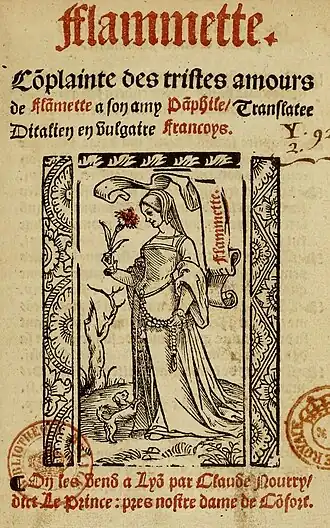 Flammette.
Cõplainte des tristes amours
de Flãmette a son amy Pãphile/ Translatee
Ditalien en vulgaire Francoys.
Y. 92
2.
Flammette.
On les vend a Lyõ par Claude Nourry/
dict Le Prince: pres nostre dame de Cõfort.